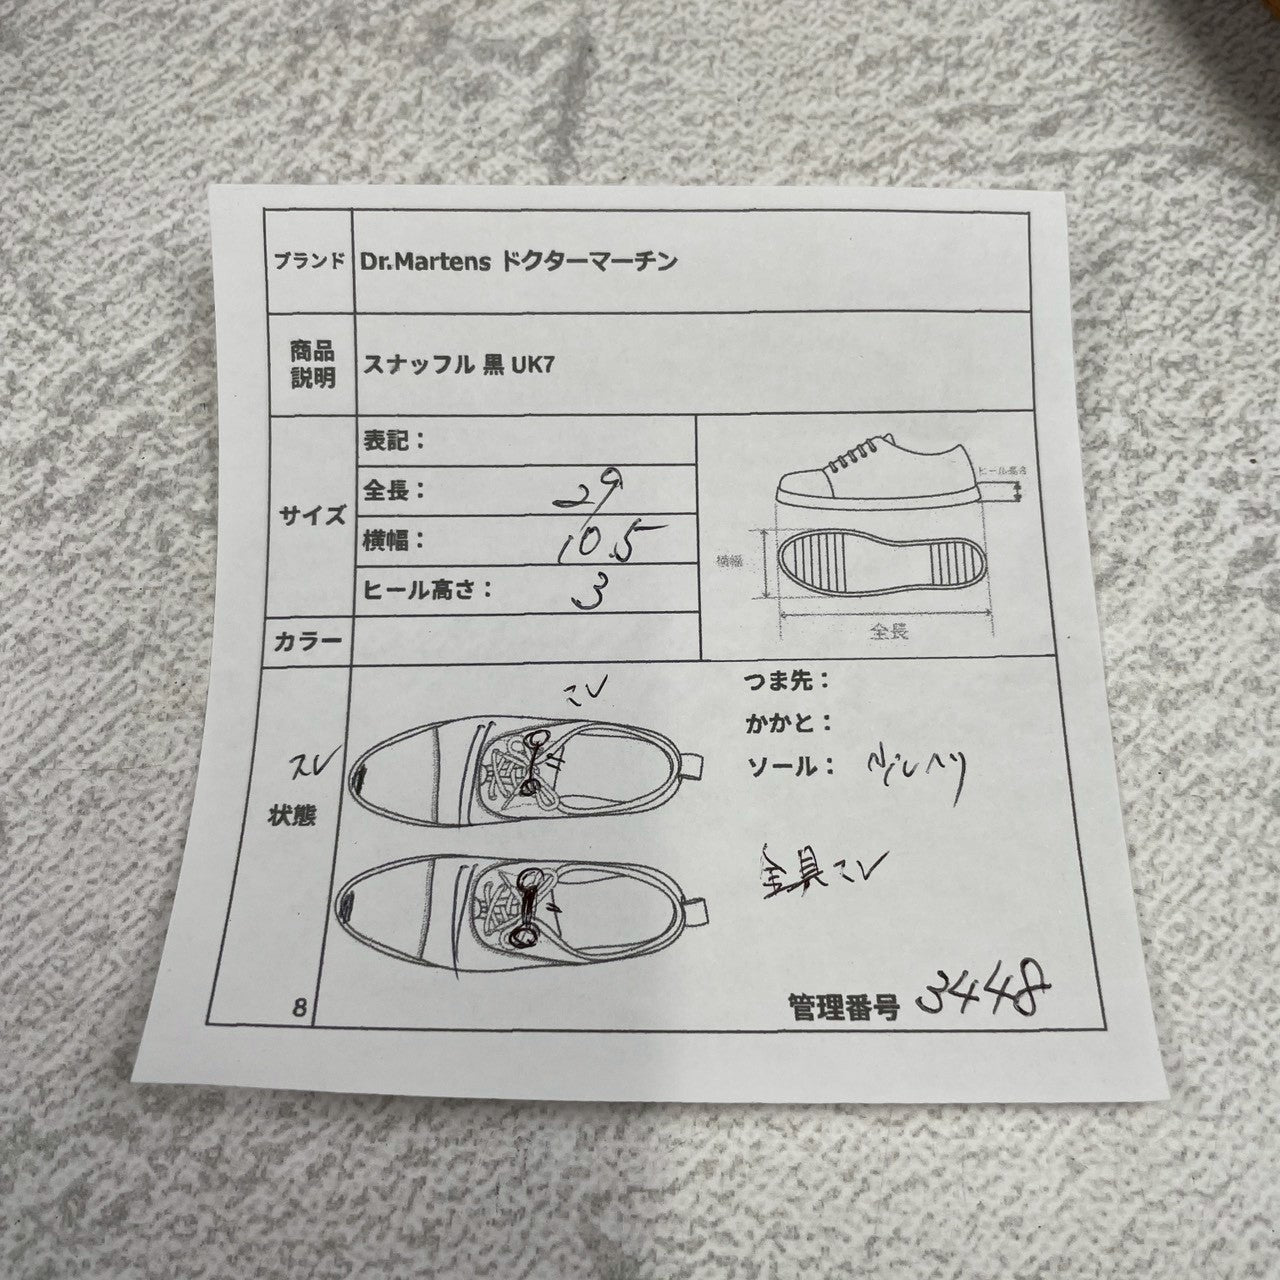 ブランド Dr.Martens ドクターマーチン
商品説明 スナッフル 黒 UK7
サイズ
表記：
全長： 29
横幅： 10.5
ヒール高さ： 3
ヒール高さ
横幅
全長
カラー
スレ
状態
つま先：
かかと：
ソール： 小ヘリ
金具
8
管理番号 3448